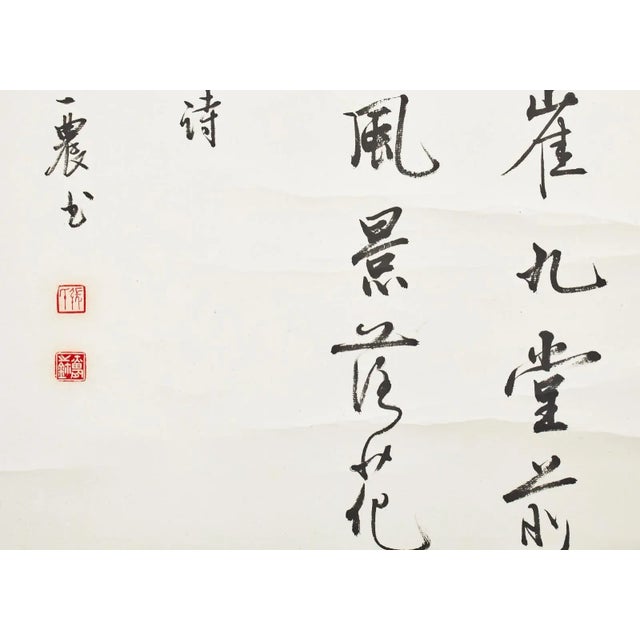 崔九堂前
風景落花
诗
一農书